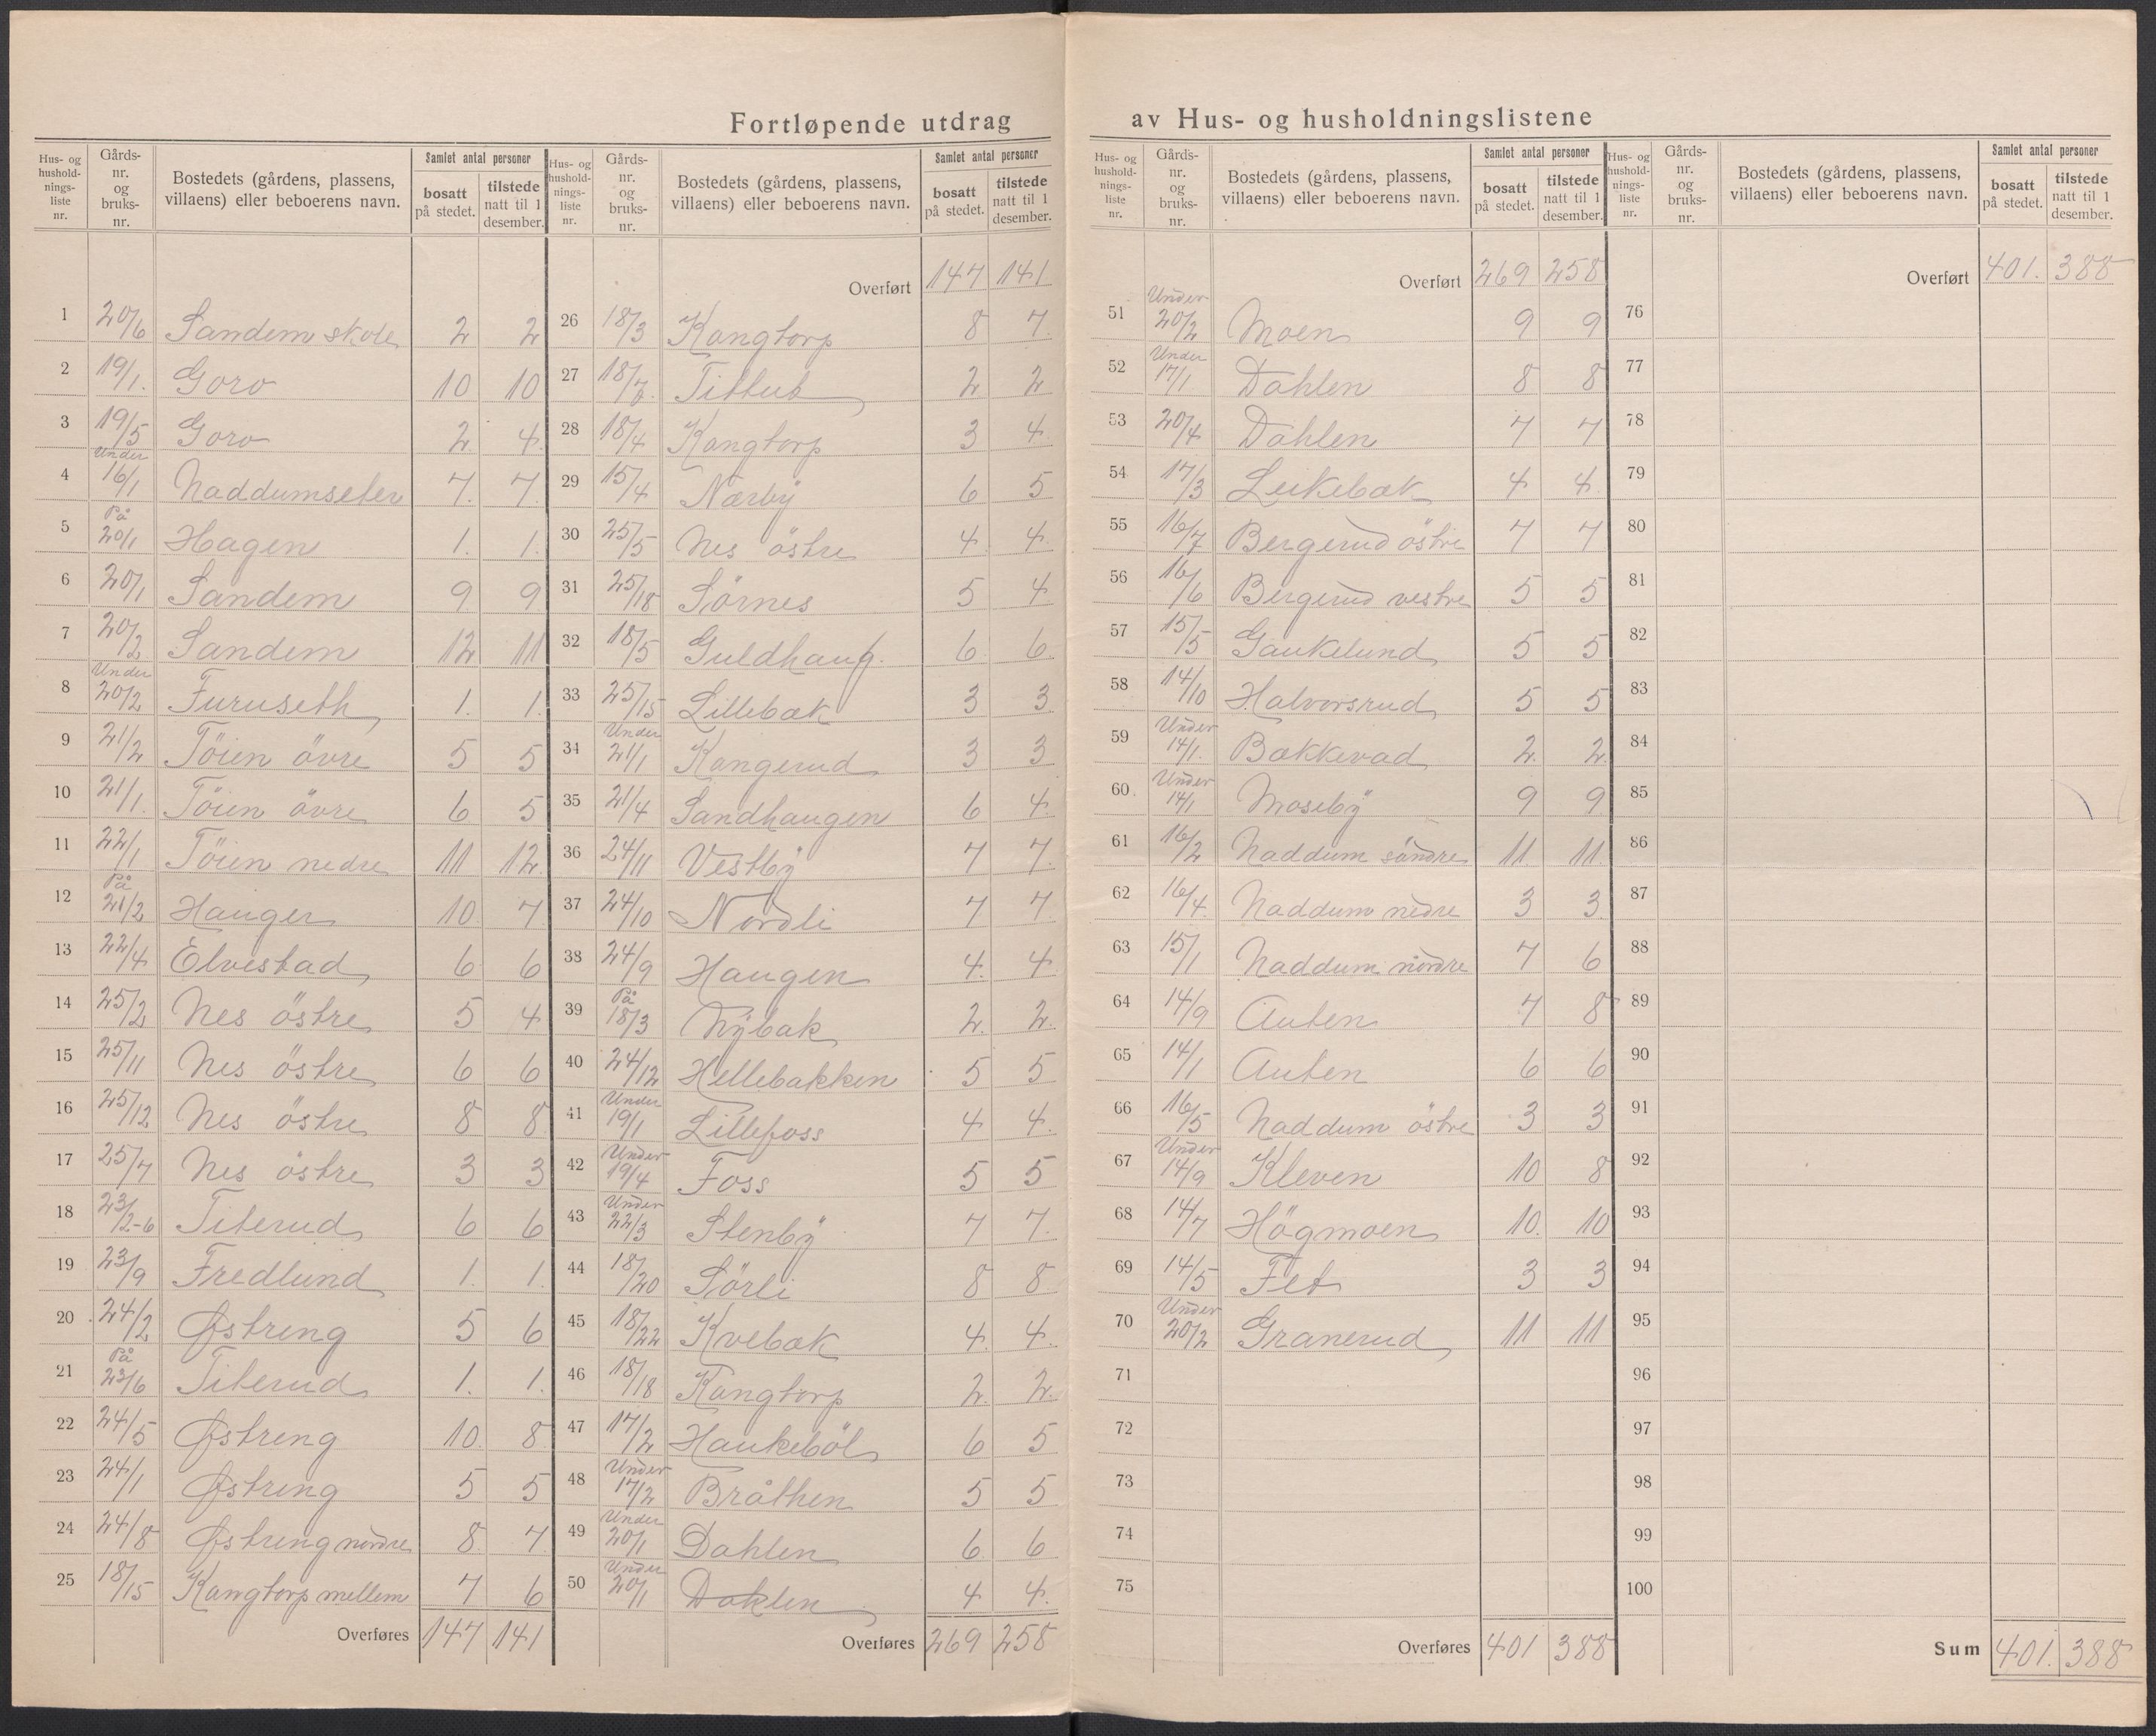 Fortløpende utdrag av Hus- og husholdningslistene
Hus- og hushold-nings-liste nr. | Gårds-nr. og bruks-nr. | Bostedets (gårdens, plassens, villaens) eller beboerens navn. | Samlet antal personer | bosatt på stedet. | tilstede natt til 1 desember.
1 20/6 Sandem skole 2 2
2 19/1. Goro 10 10
3 19/5 Goro 2. 4.
4 Under 16/1 Naddumseter 7. 7.
5 På 20/1 Hagen 1. 1.
6 20/1 Sandem 9 9
7 20/2 Sandem 12 11
8 Under 20/2 Furuseth 1. 1.
9 21/2 Töien övre 5 5
10 21/1. Töien övre 6 5
11 22/1 Töien nedre 11 12.
12 På 21/2 Hauger 10. 7.
13 22/4 Elvestad 6 6
14 25/2 Nes östre 5 4
15 25/11 Nes östre 6 6
16 25/12 Nes östre 8 8
17 25/7 Nes östre 3 3
18 23/2-6 Titerud 6 6
19 23/9 Fredlund 1. 1.
20 24/2 Østreng 5 6
21 På 23/6 Titerud 1. 1.
22 24/5 Østreng 10. 8
23 24/1 Østreng 5 5
24 24/8 Østreng nordre 8. 7
25 18/15 Kangtorp mellem 7 6
Overføres 147 141
Hus- og hushold-nings-liste nr. | Gårds-nr. og bruks-nr. | Bostedets (gårdens, plassens, villaens) eller beboerens navn. | Samlet antal personer | bosatt på stedet. | tilstede natt til 1 desember.
Overført 147 141
26 18/3 Kangtorp 8 7.
27 18/7. 2 2
28 18/4 Kangtorp 3 4
29 15/4 Nærby 6 5
30 25/5 Nes östre 4 4
31 25/18 Sörnes 5 4
32 18/5 Guldhaug. 6 6.
33 25/15 Lillebæk 3 3
34 Under 21/1 Kangerud 3 3
35 21/4 Sandhaugen 6 4.
36 24/11 Vestby 7 7.
37 24/10 Nordli 7 7
38 24/9 Haugen 4. 4.
39 På 18/3 Nybæk 2. 2.
40 24/12 Hellebækken 5 5
41 Under 19/1 Lillefoss 4 4.
42 Under 19/4 Foss 5 5
43 Under 22/3 Stenby 7 7.
44 18/20 Sörli 8 8
45 18/22 Kvebæk 4. 4.
46 18/18 Kangtorp 2. 2.
47 17/2 Haukeböl 6 5
48 Under 17/2 Bråthen 5 5
49 Under 20/1 Dahlen 6. 6
50 Under 20/1 Dahlen 4 4.
Overføres 269 258
Hus- og hushold-nings-liste nr. | Gårds-nr. og bruks-nr. | Bostedets (gårdens, plassens, villaens) eller beboerens navn. | Samlet antal personer | bosatt på stedet. | tilstede natt til 1 desember.
Overført 269 258
51 Under 20/2 Moen 9 9
52 Under 17/1 Dahlen 8 8
53 20/4 Dahlen 7 7
54 17/3 Leikebæk 4 4.
55 16/7 Bergerud östre 7 7
56 16/6 Bergerud vestre 5 5
57 15/5 Gaukelund 5 5
58 14/10 Halvorsrud 5 5
59 Under 14/1. Bækkevad 2. 2.
60 Under 14/1 Moseby 9 9
61 16/2 Naddum söndre 11. 11.
62 16/4. Naddum nedre 3 3
63 15/1 Naddum nordre 7 6
64 14/9 Auten 7 8
65 14/1 Auten 6 6
66 16/5 Naddum östre 3 3
67 Under 14/9 Kleven 10 8
68 14/7 Högmoen 10. 10
69 14/5 Fet 3 3
70 Under 20/2 Granerud 11 11
71
72
73
74
75
Overføres 401 388
Hus- og hushold-nings-liste nr. | Gårds-nr. og bruks-nr. | Bostedets (gårdens, plassens, villaens) eller beboerens navn. | Samlet antal personer | bosatt på stedet. | tilstede natt til 1 desember.
Overført 401. 388
76
77
78
79
80
81
82
83
84
85
86
87
88
89
90
91
92
93
94
95
96
97
98
99
100
Sum 401. 388